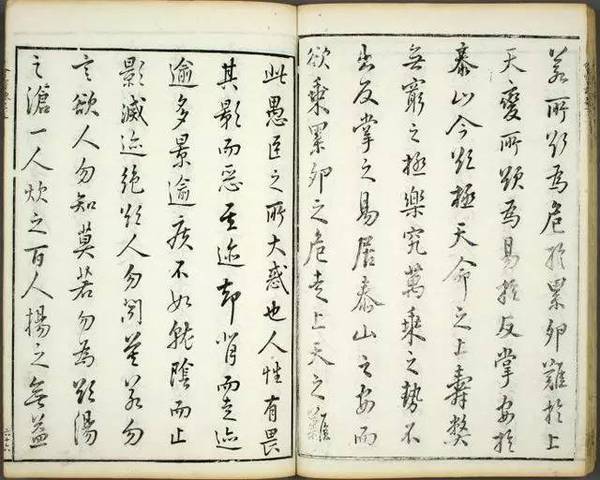 若所欲為危於累卵難於上
天變所欲為易於反掌安於
泰山今欲極天命之上壽獘
無窮之極樂究萬乘之勢不
出反掌之易居泰山之安而
欲乘累卵之危走上天之難
此愚臣之所大惑也人性有畏
其影而惡其迹却背而走迹
逾多景逾疾不如就陰而止
影滅迹絕欲人勿聞莫若勿
言欲人勿知莫若勿為欲湯
之滄一人炊之百人揚之無益